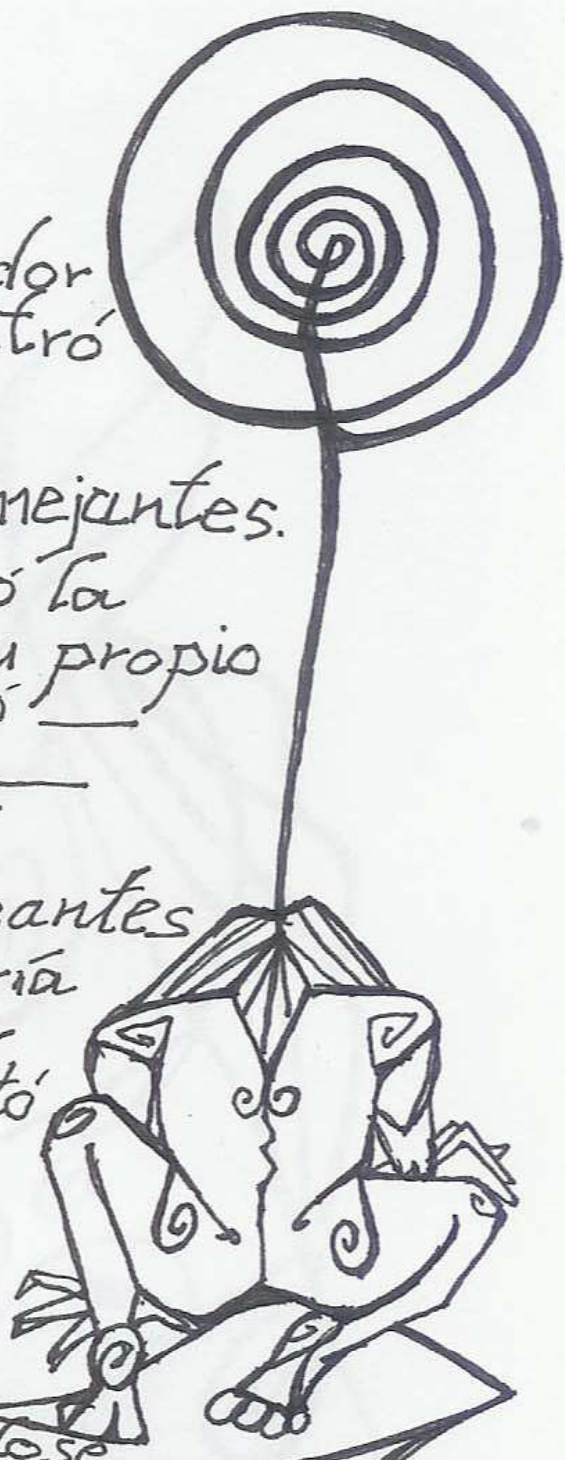 dor
tró
nejantes.
ó la
u propio
ó —
—
eantes
ría
tó
dose